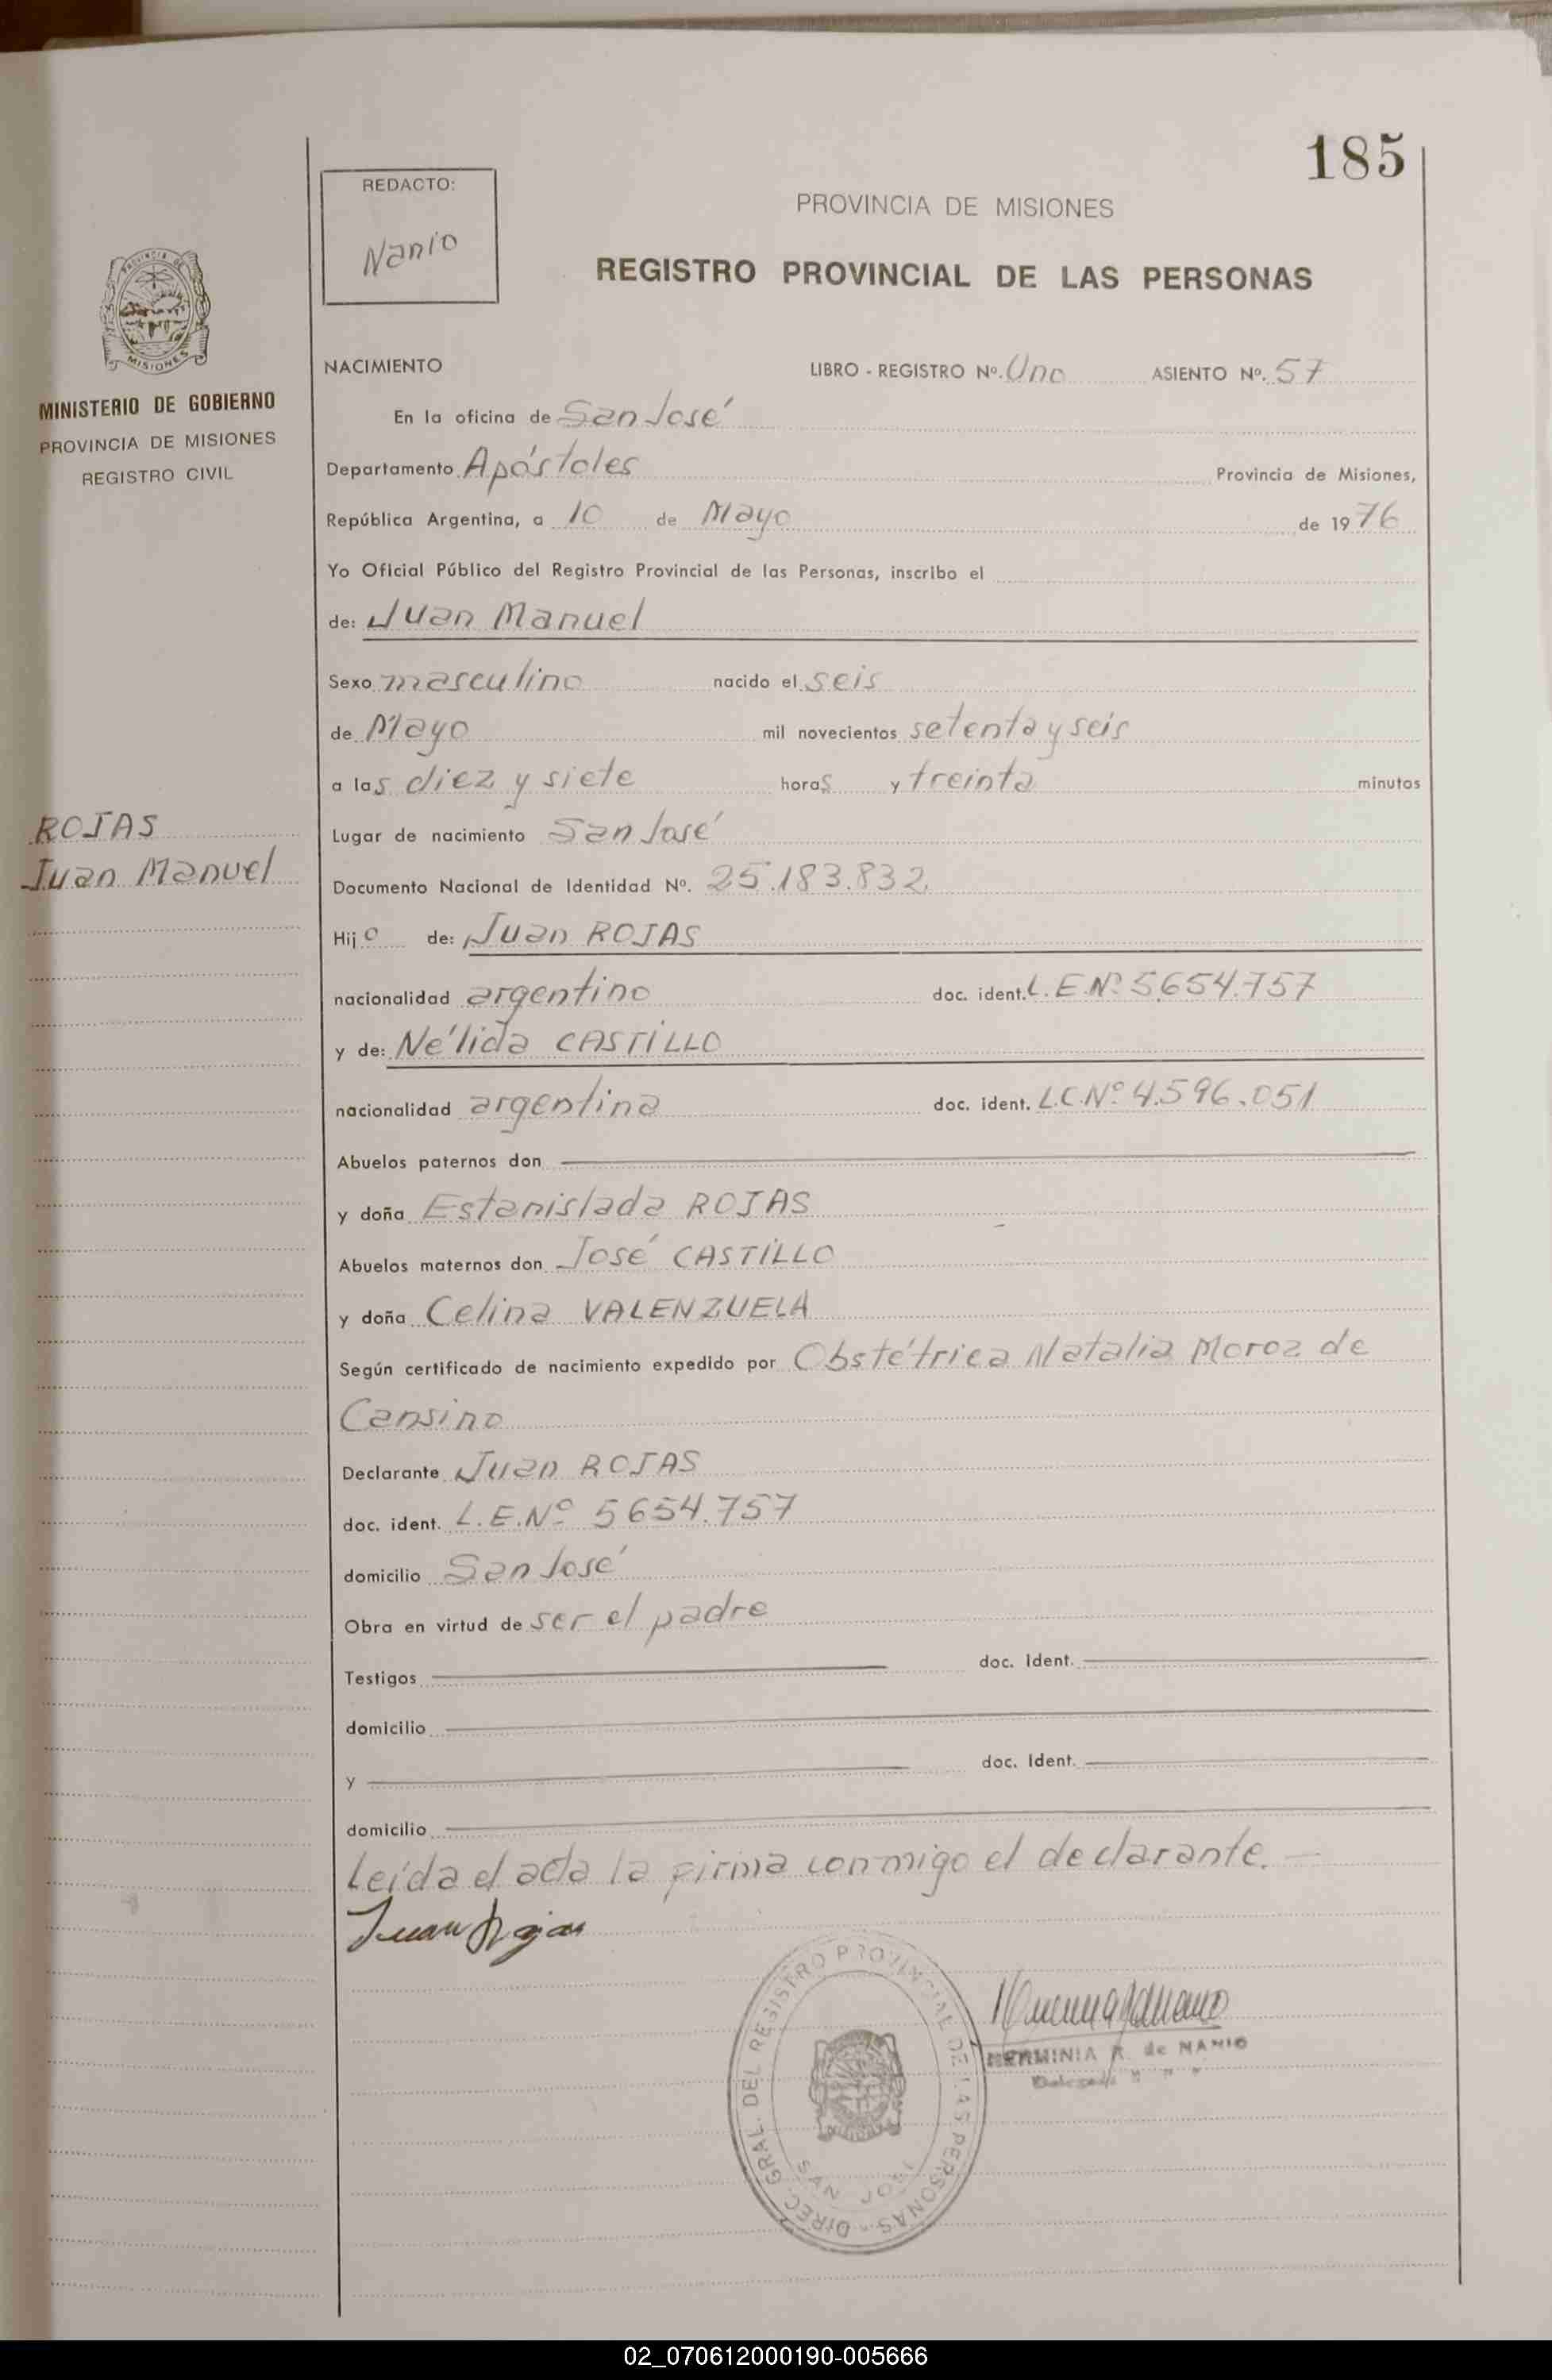 185
REDACTO:
Nanio
PROVINCIA DE MISIONES
REGISTRO PROVINCIAL DE LAS PERSONAS
PROVINCIA DE
MISIONES
MINISTERIO DE GOBIERNO
PROVINCIA DE MISIONES
REGISTRO CIVIL
NACIMIENTO LIBRO - REGISTRO Nº. Uno ASIENTO Nº. 57
En la oficina de San José
Departamento Apóstoles Provincia de Misiones,
República Argentina, a 10 de Mayo de 1976
Yo Oficial Público del Registro Provincial de las Personas, inscribo el
de: Juan Manuel
Sexo masculino nacido el seis
de Mayo mil novecientos setenta y seis
a las diez y siete horas y treinta minutos
ROJAS
Juan Manuel
Lugar de nacimiento San José
Documento Nacional de Identidad Nº. 25.183.832.
Hijo de: Juan ROJAS
nacionalidad argentino doc. ident. L.E.Nº 5.654.757
y de: Nélida CASTILLO
nacionalidad argentina doc. ident. L.C.Nº 4.596.051
Abuelos paternos don
y doña Estanislada ROJAS
Abuelos maternos don José CASTILLO
y doña Celina VALENZUELA
Según certificado de nacimiento expedido por Obstétrica Natalia Moroz de
Cansino
Declarante Juan ROJAS
doc. ident. L.E.Nº 5654.757
domicilio San José
Obra en virtud de ser el padre
Testigos doc. Ident.
domicilio
y doc. Ident.
domicilio
Leída el acta la firma conmigo el declarante.
Juan Rojas
DIREC. GRAL. DEL REGISTRO PROVINCIAL DE LAS PERSONAS
SAN JOSE
HERMINIA R. de NANIO
02_070612000190-005666